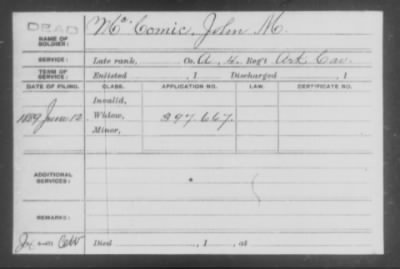 DEAD
NAME OF SOLDIER: McComic, John M.
SERVICE: Late rank, Co. A, 4. Reg't Ark Cav.
TERM OF SERVICE: Enlisted , 1 Discharged , 1
DATE OF FILING. CLASS. APPLICATION NO. LAW. CERTIFICATE NO.
Invalid,
1889 June 12 Widow, 397.667.
Minor,
ADDITIONAL SERVICES:
REMARKS:
Died , 1 , at